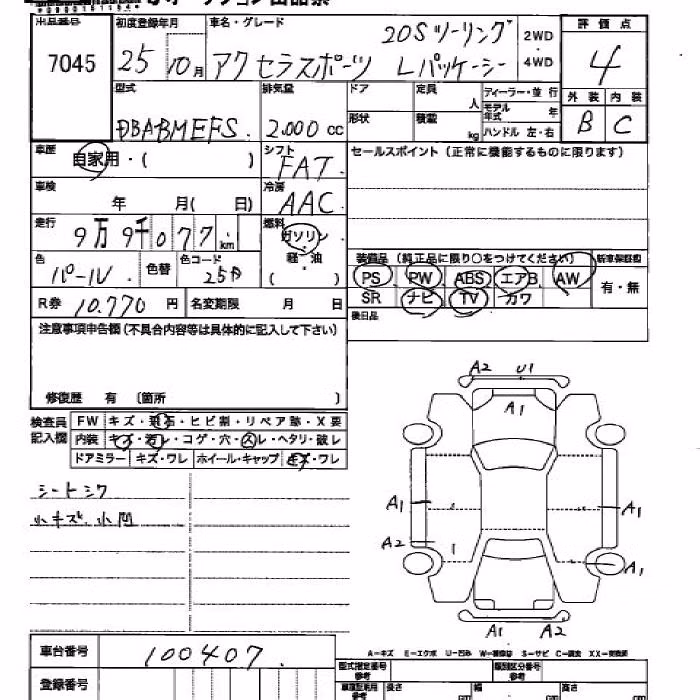 出品番号 初度登録年月 車名・グレード 20S ツーリング 2WD 評価点
7045 25 10月 アクセラスポーツ Lパッケージ 4WD 4
型式 排気量 ドア 定員 人 ディーラー・並行 外装 内装
DBABMEFS. 2.000 cc 形状 積載 kg モデル年式 年 ハンドル 左・右 B C
車歴 自家用・( ) シフト FAT. セールスポイント (正常に機能するものに限ります)
車検 年 月( 日) 冷房 AAC.
走行 9万9千077 km 燃料 ガソリン・
色 パール 色替 色コード 25D 軽・油 ( ) 装備品 (純正品に限り〇をつけてください) 新車保証書
PS PW ABS エアB AW 有・無
R券 10.770 円 名変期限 月 日 SR ナビ TV カワ
後日品
注意事項申告欄(不具合内容等は具体的に記入して下さい)
修復歴 有 〔箇所
検査員記入欄 FW キズ・飛石・ヒビ割・リペア跡・X要
内装 キズ・汚レ・コゲ・穴・スレ・ヘタリ・破レ
ドアミラー キズ・ワレ ホイール・キャップ キズ・ワレ
シートシワ
小キズ、小凹
A2 U1
A1
A1 A1
A2
A1
A1 A2
A-キズ E-エクボ U-凹み W-補修跡 S-サビ C-腐食 XX-交換済
車台番号 100407. 型式指定番号 参考 類別区分番号 参考
登録番号 車庫証明用 参考 長さ cm 幅 cm 高さ cm